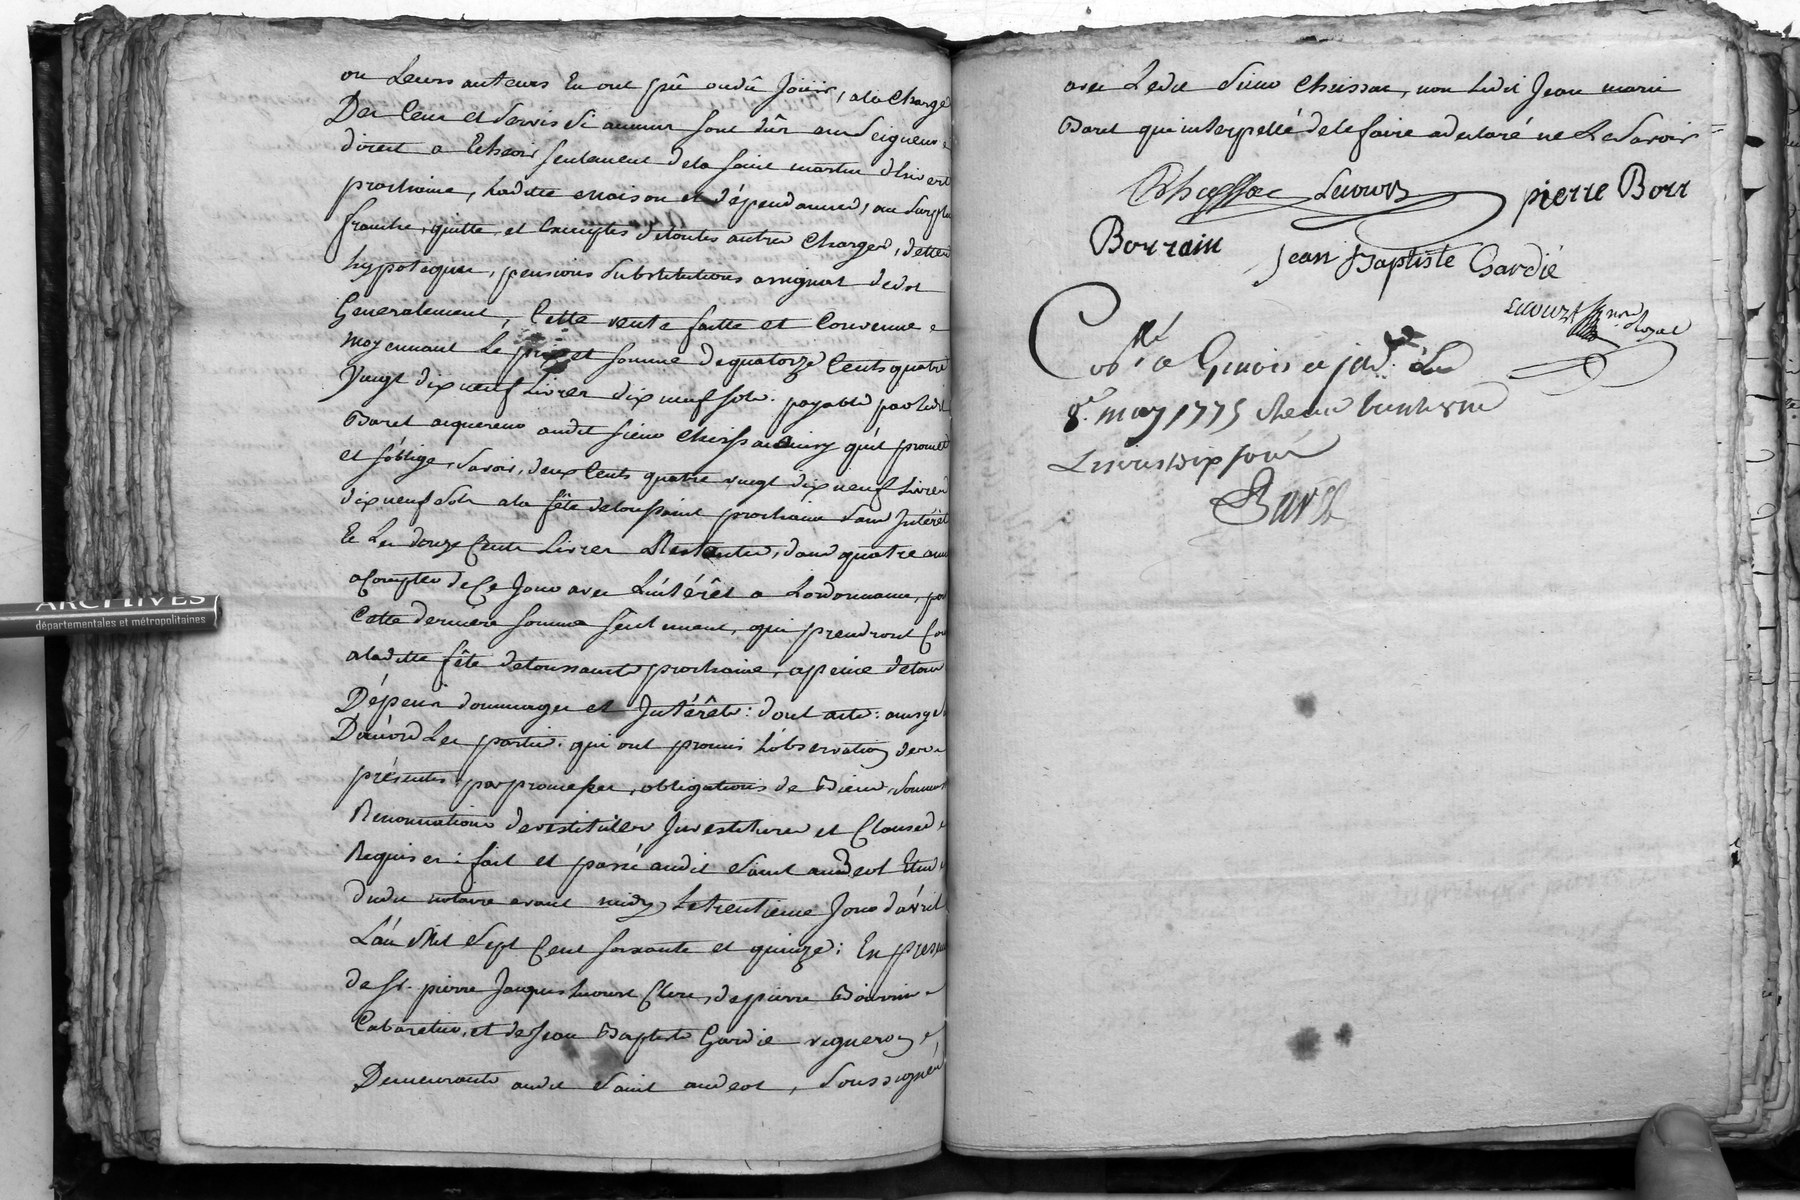 ou Leurs auteurs En ont pû ou dû Joüir, ala charge
Des Cens et servis si aucuns sont dûs aux seigneurs
direct a Echeoir seulement dela saint martin dhivert
prochaine, Ladite maison et dépendances, au surplus
franche, quitte et Exemptes detoutes autres charges, dettes
hypoteques, pensions substitutions assignat dedot
Generalement, Cette vente faitte et Convenue
moyennant Le prix et somme dequatorze Cents quatre
Vingt dix neuf Livres dix neuf sols. payable par ledit
Baret acquereur audit sieur Cheissac ainsy qu'il promet
et s'oblige, savoir, deux Cents quatre vingt dix neuf Livres
dix neuf sols ala fête detoussaint prochaine sans Intérêt
Et Les douze Cents Livres Restantes, dans quatre ans
aCompter de Ce Jour avec L'intérêt a Lordonnance, pour
Cette derniere somme seulement, qui prendront Cours
aladitte fête detoussaint prochaine, apeine detous
Dépens dommages et Intérêts : dont acte : ainsy
D'accord Les parties. qui ont promis L'observation des
présentes, par promesses, obligations de Biens, soumissions
Renonciations devestitures Investitures et Clauses
Requises : fait et passé audit saint andeol Etude
dudit notaire avant midy Letrentieme Jour d'avril
L'an Mil sept Cent soixante et quinze : En presence
de sr. pierre Jacques Lucourt Clerc, depierre Bourrin
Cabaretier, et de Jean Baptiste Gardie vigneron
Demeurants audit saint andeol, soussignés
avec Ledit sieur Cheissac, non Ledit Jean marie
Baret qui interpellé dele faire adeclaré ne Le savoir
pierre Borr
Borrain
Jean Baptiste Gardié
Coné. a Givors ce
8e. may 1775
Livres dix sous